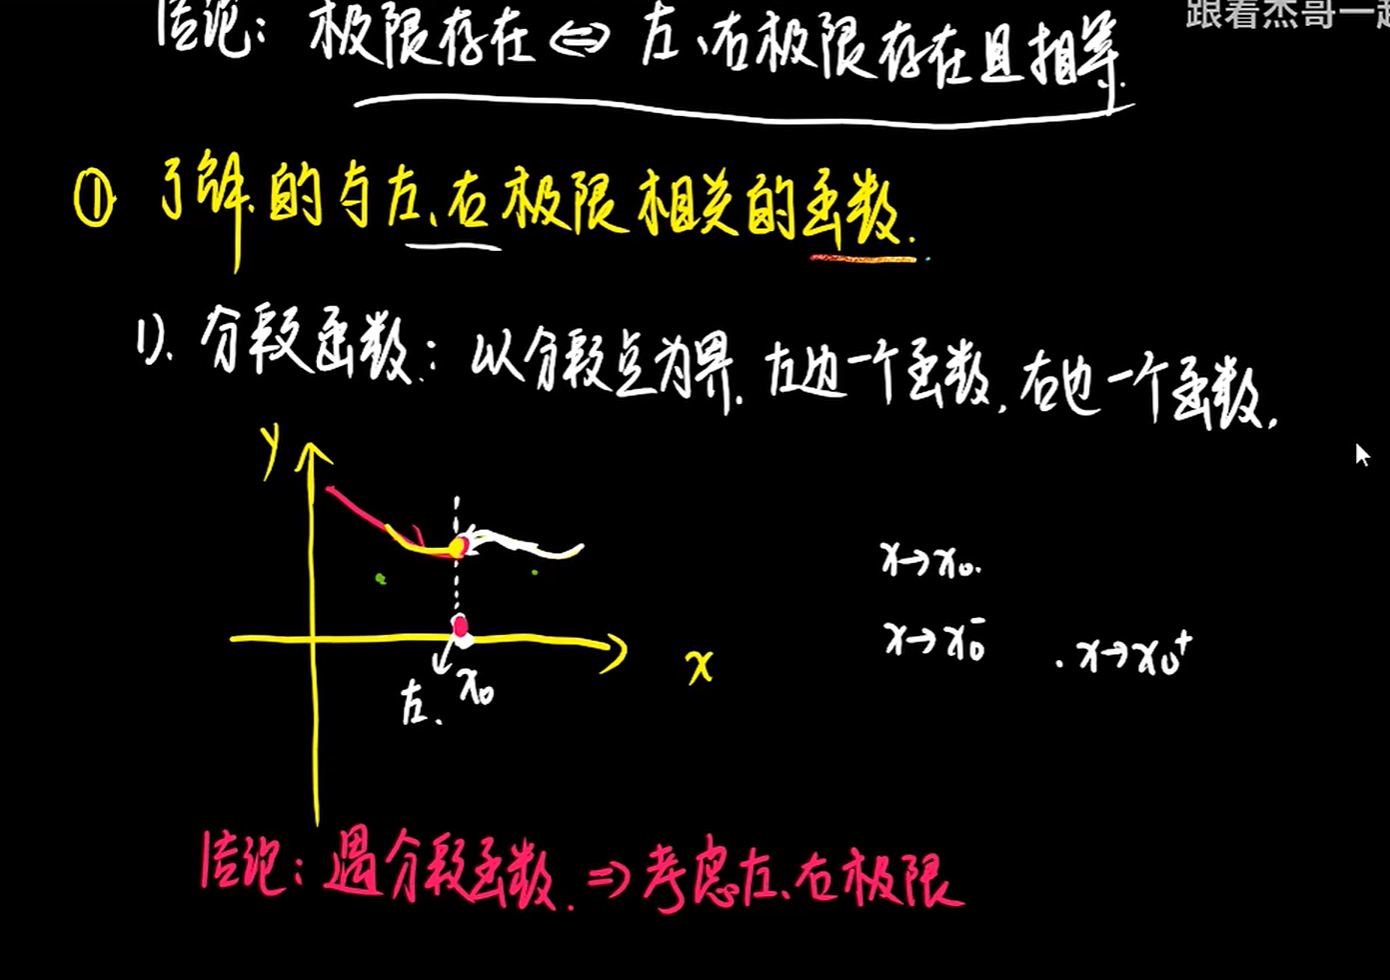 跟着杰哥一起
结论: 极限存在 ⇔ 左、右极限存在且相等.
① 了解的与左、右极限相关的函数.
1). 分段函数: 以分段点为界. 左边一个函数, 右边一个函数.
y
x→x₀.
x→x₀⁻ . x→x₀⁺
x
左. x₀
结论: 遇分段函数. ⇒ 考虑左、右极限